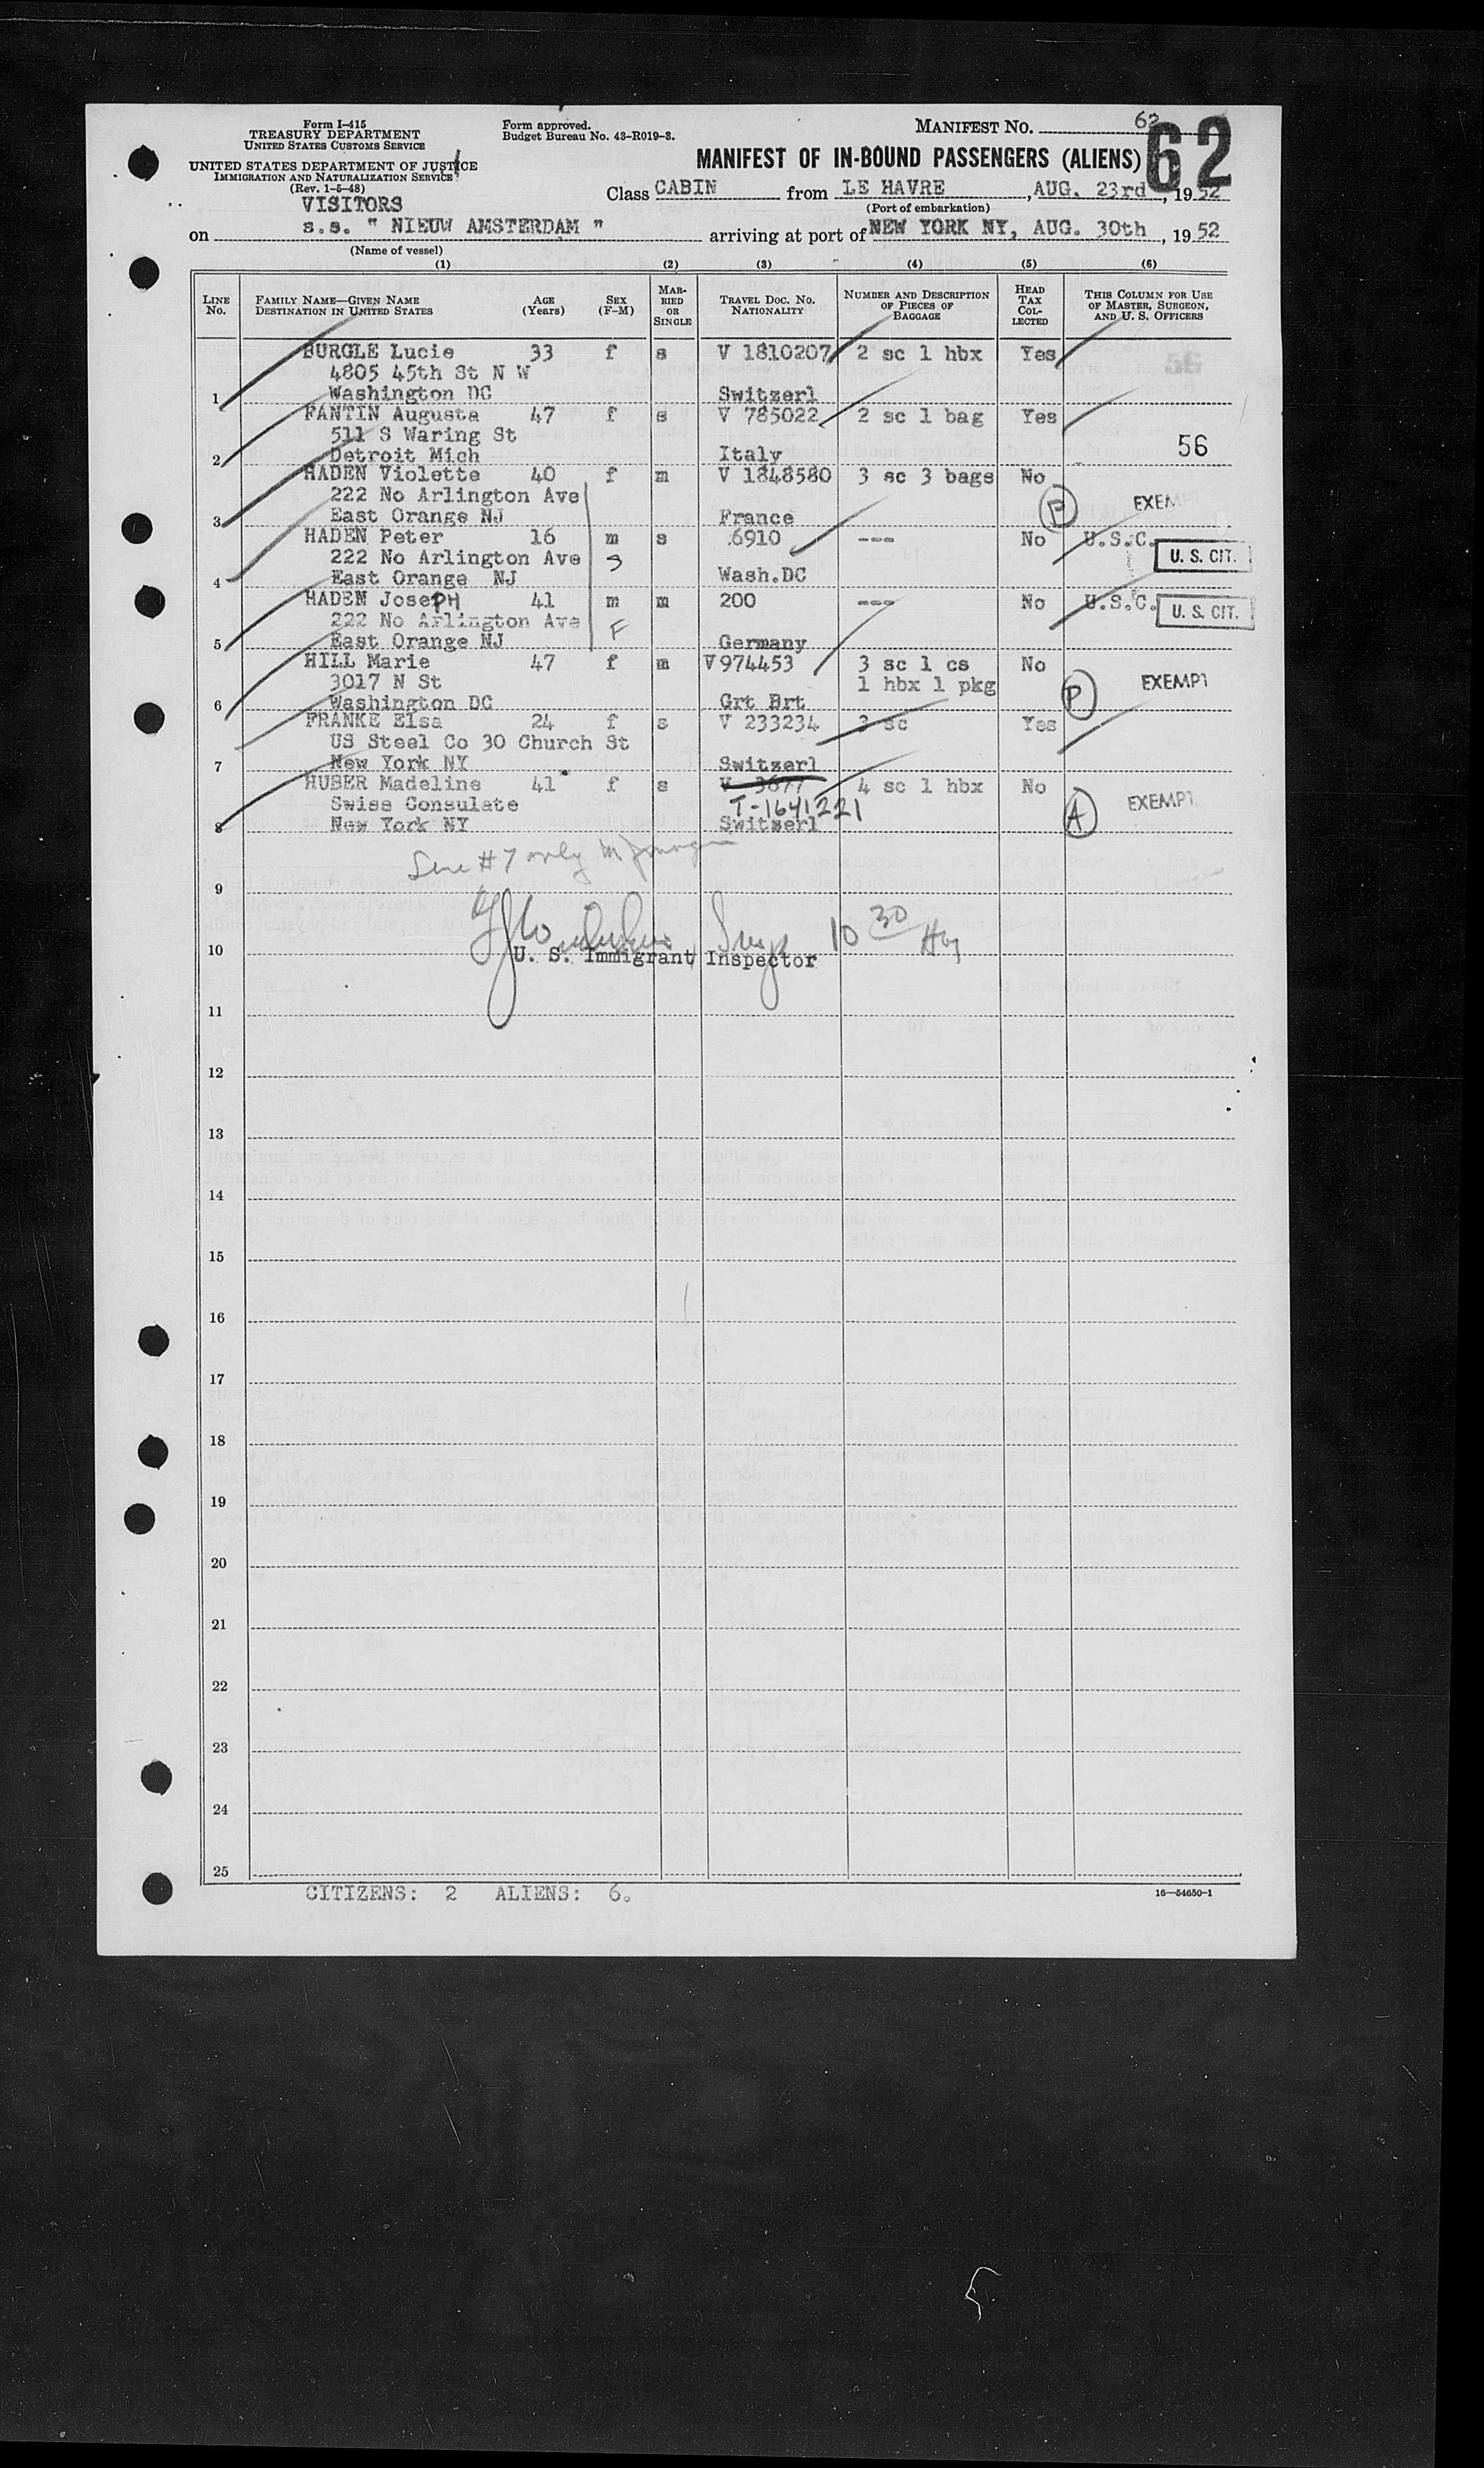 Form I-415
TREASURY DEPARTMENT
UNITED STATES CUSTOMS SERVICE
UNITED STATES DEPARTMENT OF JUSTICE
IMMIGRATION AND NATURALIZATION SERVICE
(Rev. 1-5-48)
Form approved.
Budget Bureau No. 43-R019-3.
MANIFEST NO. 62
62
MANIFEST OF IN-BOUND PASSENGERS (ALIENS)
Class CABIN from LE HAVRE, AUG. 23rd, 1952
(Port of embarkation)
VISITORS
on s.s. " NIEUW AMSTERDAM " arriving at port of NEW YORK NY, AUG. 30th, 1952
(Name of vessel)
(1) (2) (3) (4) (5) (6)
LINE No. FAMILY NAME—GIVEN NAME DESTINATION IN UNITED STATES AGE (Years) SEX (F-M) MARRIED OR SINGLE TRAVEL DOC. NO. NATIONALITY NUMBER AND DESCRIPTION OF PIECES OF BAGGAGE HEAD TAX COLLECTED THIS COLUMN FOR USE OF MASTER, SURGEON, AND U. S. OFFICERS
BURGLE Lucie 33 f s V 1810207 2 sc 1 hbx Yes 56
4805 45th St N W
1 Washington DC Switzerl
FANTIN Augusta 47 f s V 785022 2 sc 1 bag Yes
511 S Waring St 56
2 Detroit Mich Italy
HADEN Violette 40 f m V 1848580 3 sc 3 bags No
222 No Arlington Ave P EXEMP
3 East Orange NJ France
HADEN Peter 16 m s 6910 --- No U.S.C.
222 No Arlington Ave S U. S. CIT.
4 East Orange NJ Wash.DC
HADEN JosePH 41 m m 200 --- No U.S.C. U. S. CIT.
222 No Arlington Ave F
5 East Orange NJ Germany
HILL Marie 47 f m V974453 3 sc 1 cs No
3017 N St 1 hbx 1 pkg P EXEMPT
6 Washington DC Grt Brt
FRANKE Elsa 24 f s V 233234 3 sc Yes
US Steel Co 30 Church St
7 New York NY Switzerl
HUBER Madeline 41 f s V 3677 4 sc 1 hbx No
Swiss Consulate T-1641221 A EXEMPT
8 New York NY Switzerl
Line #7 only
9
10 30
10 U. S. Immigrant Inspector
11
12
13
14
15
16
17
18
19
20
21
22
23
24
25
CITIZENS: 2 ALIENS: 6.
16—54650-1